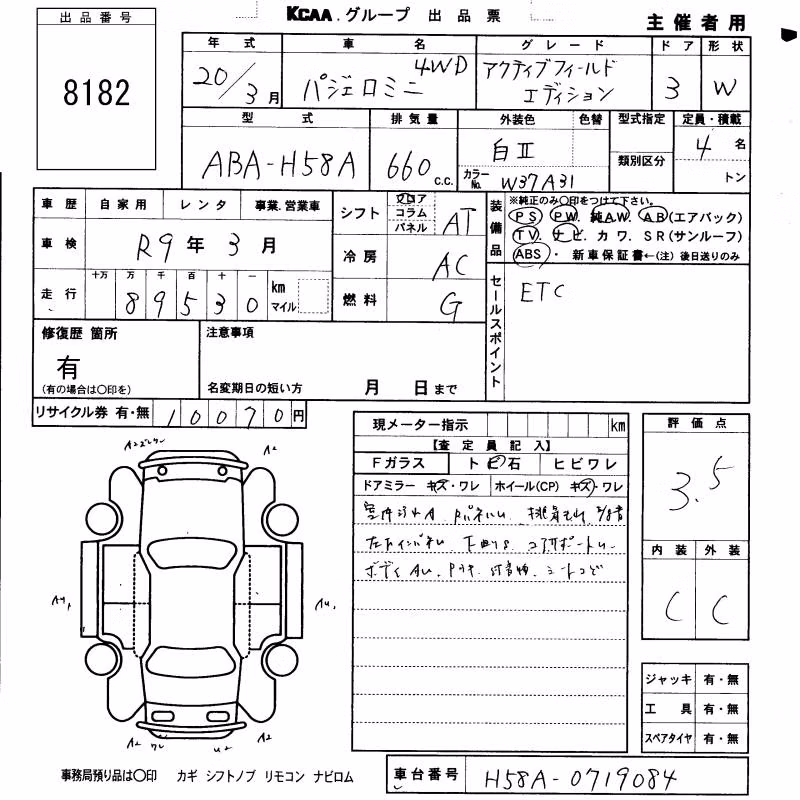 出品番号
8182
KCAA.グループ 出品票
主催者用
年式 車名 グレード ドア 形状
20/3月 パジェロミニ 4WD アクティブフィールド エディション 3 W
型式 排気量 外装色 色替 型式指定 定員・積載
ABA-H58A 660 c.c. 白Ⅱ 類別区分 4名
カラーNo. W37A31 トン
車歴 自家用 レンタ 事業.営業車
車検 R9年3月
走行 十万 万 千 百 十 一 km マイル
89530
シフト フロア コラム パネル AT
冷房 AC
燃料 G
装備品
※純正のみ〇印をつけて下さい。
PS PW. 純AW. AB(エアバック)
TV. ナビ. カワ. SR(サンルーフ)
ABS ・ 新車保証書←(注)後日送りのみ
セールスポイント
ETC
修復歴 箇所
有
(有の場合は〇印を)
注意事項
名変期日の短い方 月 日まで
リサイクル券 有・無 10070円
現メーター指示 km
【査定員記入】
Fガラス トビ石 ヒビワレ
ドアミラー キズ・ワレ ホイール(CP) キズ・ワレ
下曲り コアサポート
ボディAU.
評価点
3.5
内装 外装
C C
ジャッキ 有・無
工具 有・無
スペアタイヤ 有・無
A2
A2
AU,
AU,
A2
U2
事務局預り品は〇印 カギ シフトノブ リモコン ナビロム
車台番号 H58A-0719084